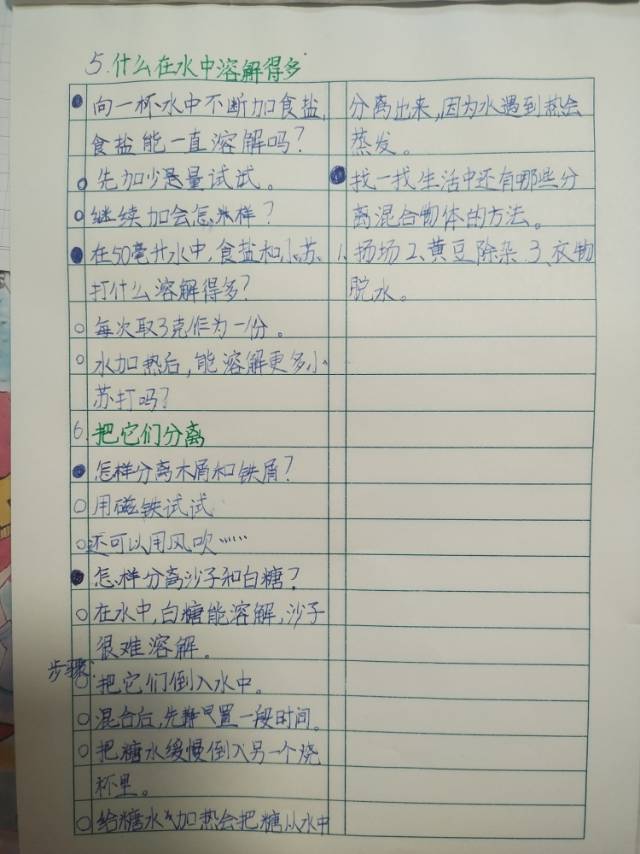 5.什么在水中溶解得多
●向一杯水中不断加食盐,
食盐能一直溶解吗?
○先加少量试试。
○继续加会怎么样?
●在50毫升水中,食盐和小苏
打什么溶解得多?
○每次取3克作为一份。
○水加热后,能溶解更多小
苏打吗?
6.把它们分离
●怎样分离木屑和铁屑?
○用磁铁试试
○还可以用风吹……
●怎样分离沙子和白糖?
○在水中,白糖能溶解,沙子
很难溶解。
步骤:
○把它们倒入水中。
○混合后,先静置一段时间。
○把糖水缓慢倒入另一个烧
杯里。
○给糖水加热会把糖从水中
分离出来,因为水遇到热会
蒸发。
●找一找生活中还有哪些分
离混合物体的方法。
1.扬场2、黄豆除杂3、衣物
脱水。